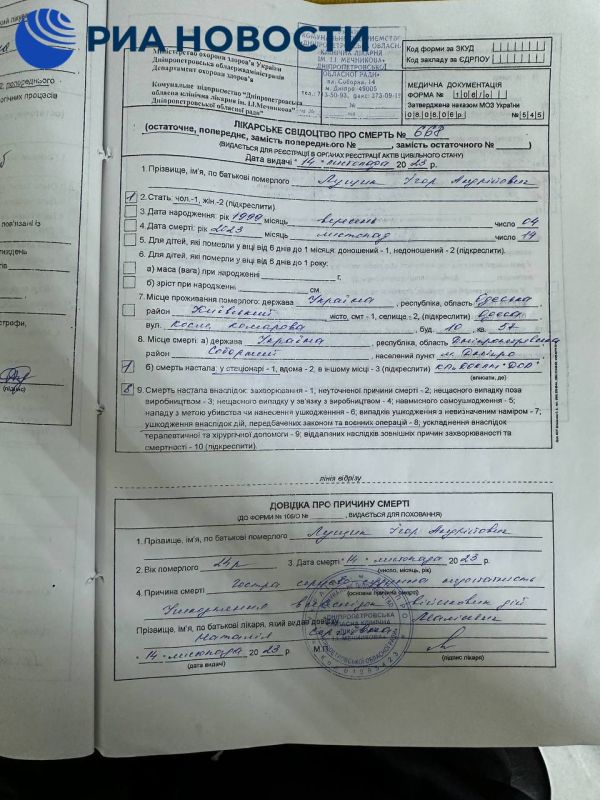 РИА НОВОСТИ
Міністерство охорони здоров'я України
Дніпропетровська облдержадміністрація
Департамент охорони здоров'я
Комунальне підприємство "Дніпропетровська
обласна клінічна лікарня ім. І.І.Мечникова"
Дніпропетровської обласної ради"
КОМУНАЛЬНЕ ПІДПРИЄМСТВО
"ДНІПРОПЕТРОВСЬКА ОБЛАСНА
КЛІНІЧНА ЛІКАРНЯ
ІМ. І.І. МЕЧНИКОВА"
ДНІПРОПЕТРОВСЬКОЇ
ОБЛАСНОЇ РАДИ"
пл. Соборна, 14
м. Дніпро 49005
Код форми за ЗКУД
Код закладу за ЄДРПОУ
МЕДИЧНА ДОКУМЕНТАЦІЯ
ФОРМА № 106/о
Затверджена наказом МОЗ України
08.08.06р. № 545
ЛІКАРСЬКЕ СВІДОЦТВО ПРО СМЕРТЬ № 668
(остаточне, попереднє, замість попереднього № , замість остаточного № )
(ВИДАЄТЬСЯ ДЛЯ РЕЄСТРАЦІЇ В ОРГАНАХ РЕЄСТРАЦІЇ АКТІВ ЦИВІЛЬНОГО СТАНУ)
Дата видачі "14" листопада 2023 р.
1. Прізвище, ім'я, по батькові померлого Лущик Ігор Андрійович
1 2. Стать: чол.-1, жін.-2 (підкреслити).
3. Дата народження: рік 1999 місяць вересень число 04
4. Дата смерті: рік 2023 місяць листопад число
5. Для дітей, які померли у віці від 6 днів до 1 місяця: доношений - 1, недоношений - 2 (підкреслити).
6. Для дітей, які померли у віці від 6 днів до 1 року:
а) маса (вага) при народженні г,
б) зріст при народженні см
7. Місце проживання померлого: держава Україна, республіка, область Одеська
район Київський місто, смт - 1, селище - 2, (підкреслити) Одеса
вул. Косм. Комарова буд. 10, кв. 57
8. Місце смерті: а) держава Україна, республіка, область Дніпропетровська
район Соборний, населений пункт м. Дніпро
1 б) смерть настала: у стаціонарі - 1, вдома - 2, в іншому місці - 3 (підкреслити)
(вписати, де)
8 9. Смерть настала внаслідок: захворювання - 1; неуточненої причини смерті - 2; нещасного випадку поза
виробництвом - 3; нещасного випадку у зв'язку з виробництвом - 4; навмисного самоушкодження - 5;
нападу з метою убивства чи нанесення ушкодження - 6; випадків ушкодження з невизначеним наміром - 7;
ушкодження внаслідок дій, передбачених законом та воєнних операцій - 8; ускладнення внаслідок
терапевтичної та хірургічної допомоги - 9; віддалених наслідків зовнішніх причин захворюваності та
смертності - 10 (підкреслити).
лінія відрізу
ДОВІДКА ПРО ПРИЧИНУ СМЕРТІ
(ДО ФОРМИ № 106/О № , ВИДАЄТЬСЯ ДЛЯ ПОХОВАННЯ)
1. Прізвище, ім'я, по батькові померлого Лущик Ігор Андрійович
2. Вік померлого 24р 3. Дата смерті "14" листопада 2023 р.
(число, місяць, рік)
4. Причина смерті Гостра недостатність
(основні причини смерті)
внаслідок військових дій
Прізвище, ім'я, по батькові лікаря, який видав довідку
Наталія
"14" листопада 2023 р. М.П.
(дата видачі) (підпис лікаря)
(підпис)